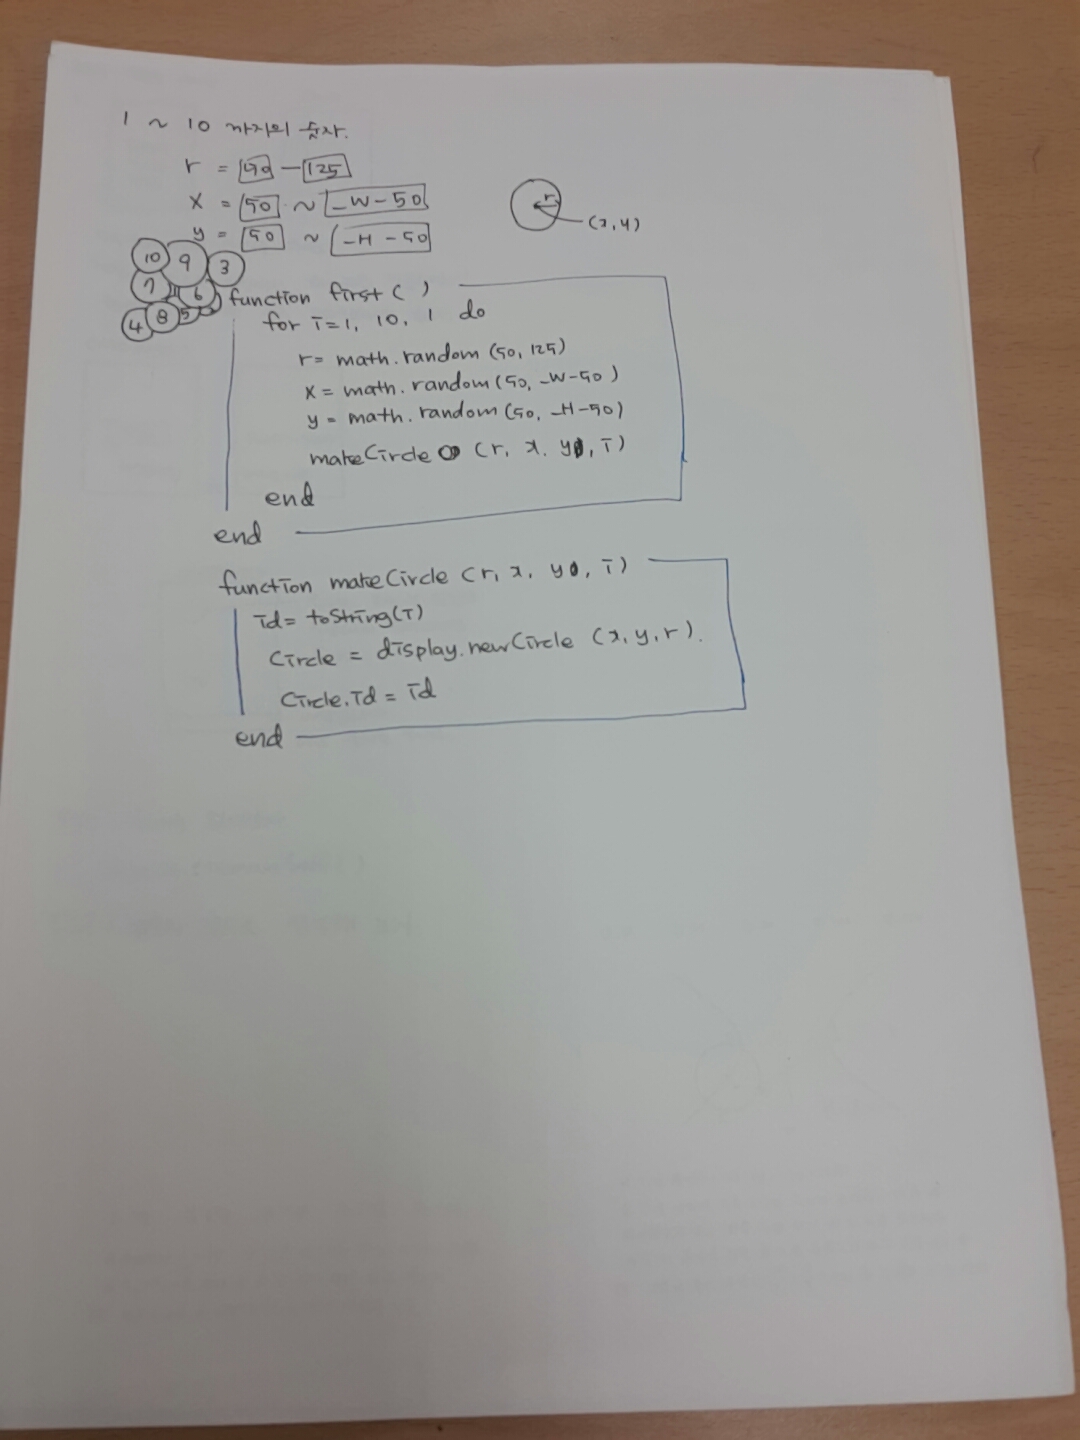 1 ~ 10 까지의 숫자.
r = 50 - 125
x = 50 ~ _W-50
y = 50 ~ _H-50
r
(x, y)
10 9 3
7 6
4 8 5
function first ( )
for i=1, 10, 1 do
r= math.random (50, 125)
x = math.random (50, _W-50)
y = math.random (50, _H-50)
makeCircle (r, x, y, i)
end
end
function makeCircle (r, x, y, i)
id= toString(i)
Circle = display.newCircle (x, y, r).
Circle.id = id
end